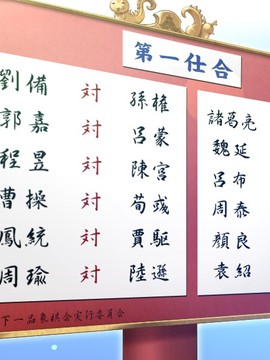 第一仕合
劉備 対 孫権
郭嘉 対 呂蒙
程昱 対 陳宮
曹操 対 荀彧
鳳統 対 賈駆
周瑜 対 陸遜
諸葛亮
魏延
呂布
周泰
顔良
袁紹
下一品象棋会実行委員会